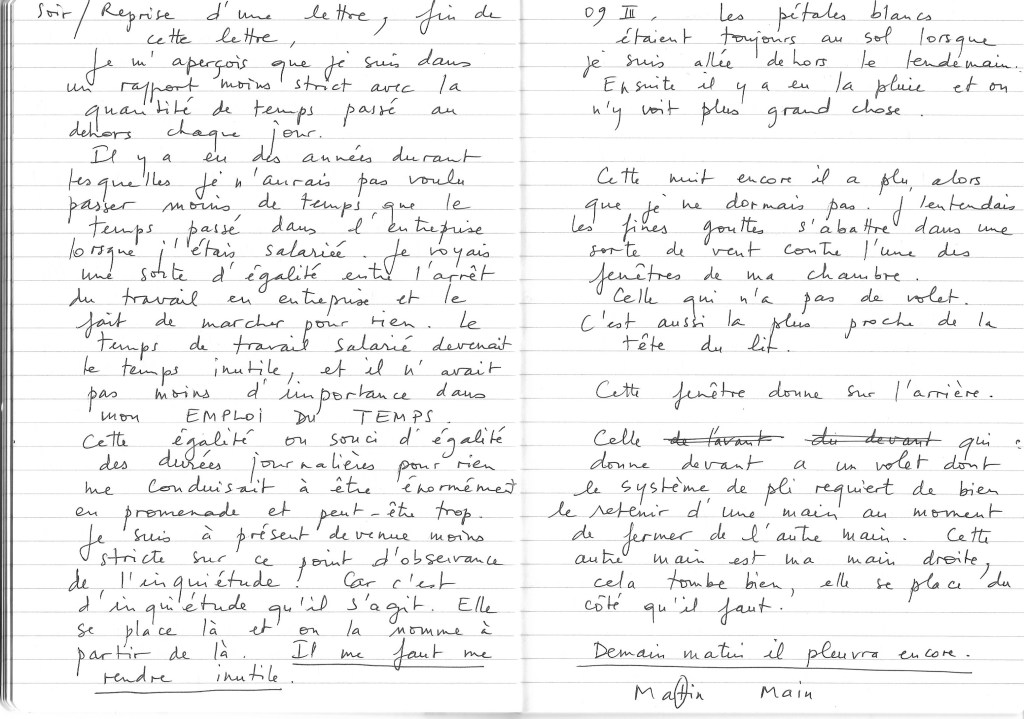 Soir / Reprise d'une lettre, fin de
cette lettre,
Je m'aperçois que je suis dans
un rapport moins strict avec la
quantité de temps passé au
dehors chaque jour.
Il y a eu des années durant
lesquelles je n'aurais pas voulu
passer moins de temps que le
temps passé dans l'entreprise
lorsque j'étais salariée. Je voyais
une sorte d'égalité entre l'arrêt
du travail en entreprise et le
fait de marcher pour rien. Le
temps de travail salarié devenait
le temps inutile, et il n'avait
pas moins d'importance dans
mon EMPLOI DU TEMPS.
Cette égalité ou souci d'égalité
des durées journalières pour rien
me conduisait à être énormément
en promenade et peut-être trop.
Je suis à présent devenue moins
stricte sur ce point d'observance
de l'inquiétude ! Car c'est
d'inquiétude qu'il s'agit. Elle
se place là et on la nomme à
partir de là. Il me faut me
rendre inutile.
09 III. Les pétales blancs
étaient toujours au sol lorsque
je suis allée dehors le lendemain.
Ensuite il y a eu la pluie et on
n'y voit plus grand chose.
Cette nuit encore il a plu, alors
que je ne dormais pas. J'entendais
les fines gouttes s'abattre dans une
sorte de vent contre l'une des
fenêtres de ma chambre.
Celle qui n'a pas de volet.
C'est aussi la plus proche de la
tête du lit.
Cette fenêtre donne sur l'arrière.
Celle de l'avant du devant qui
donne devant a un volet dont
le système de pli requiert de bien
le retenir d'une main au moment
de fermer de l'autre main. Cette
autre main est ma main droite,
cela tombe bien, elle se place du
côté qu'il faut.
Demain matin il pleuvra encore.
Matin Main